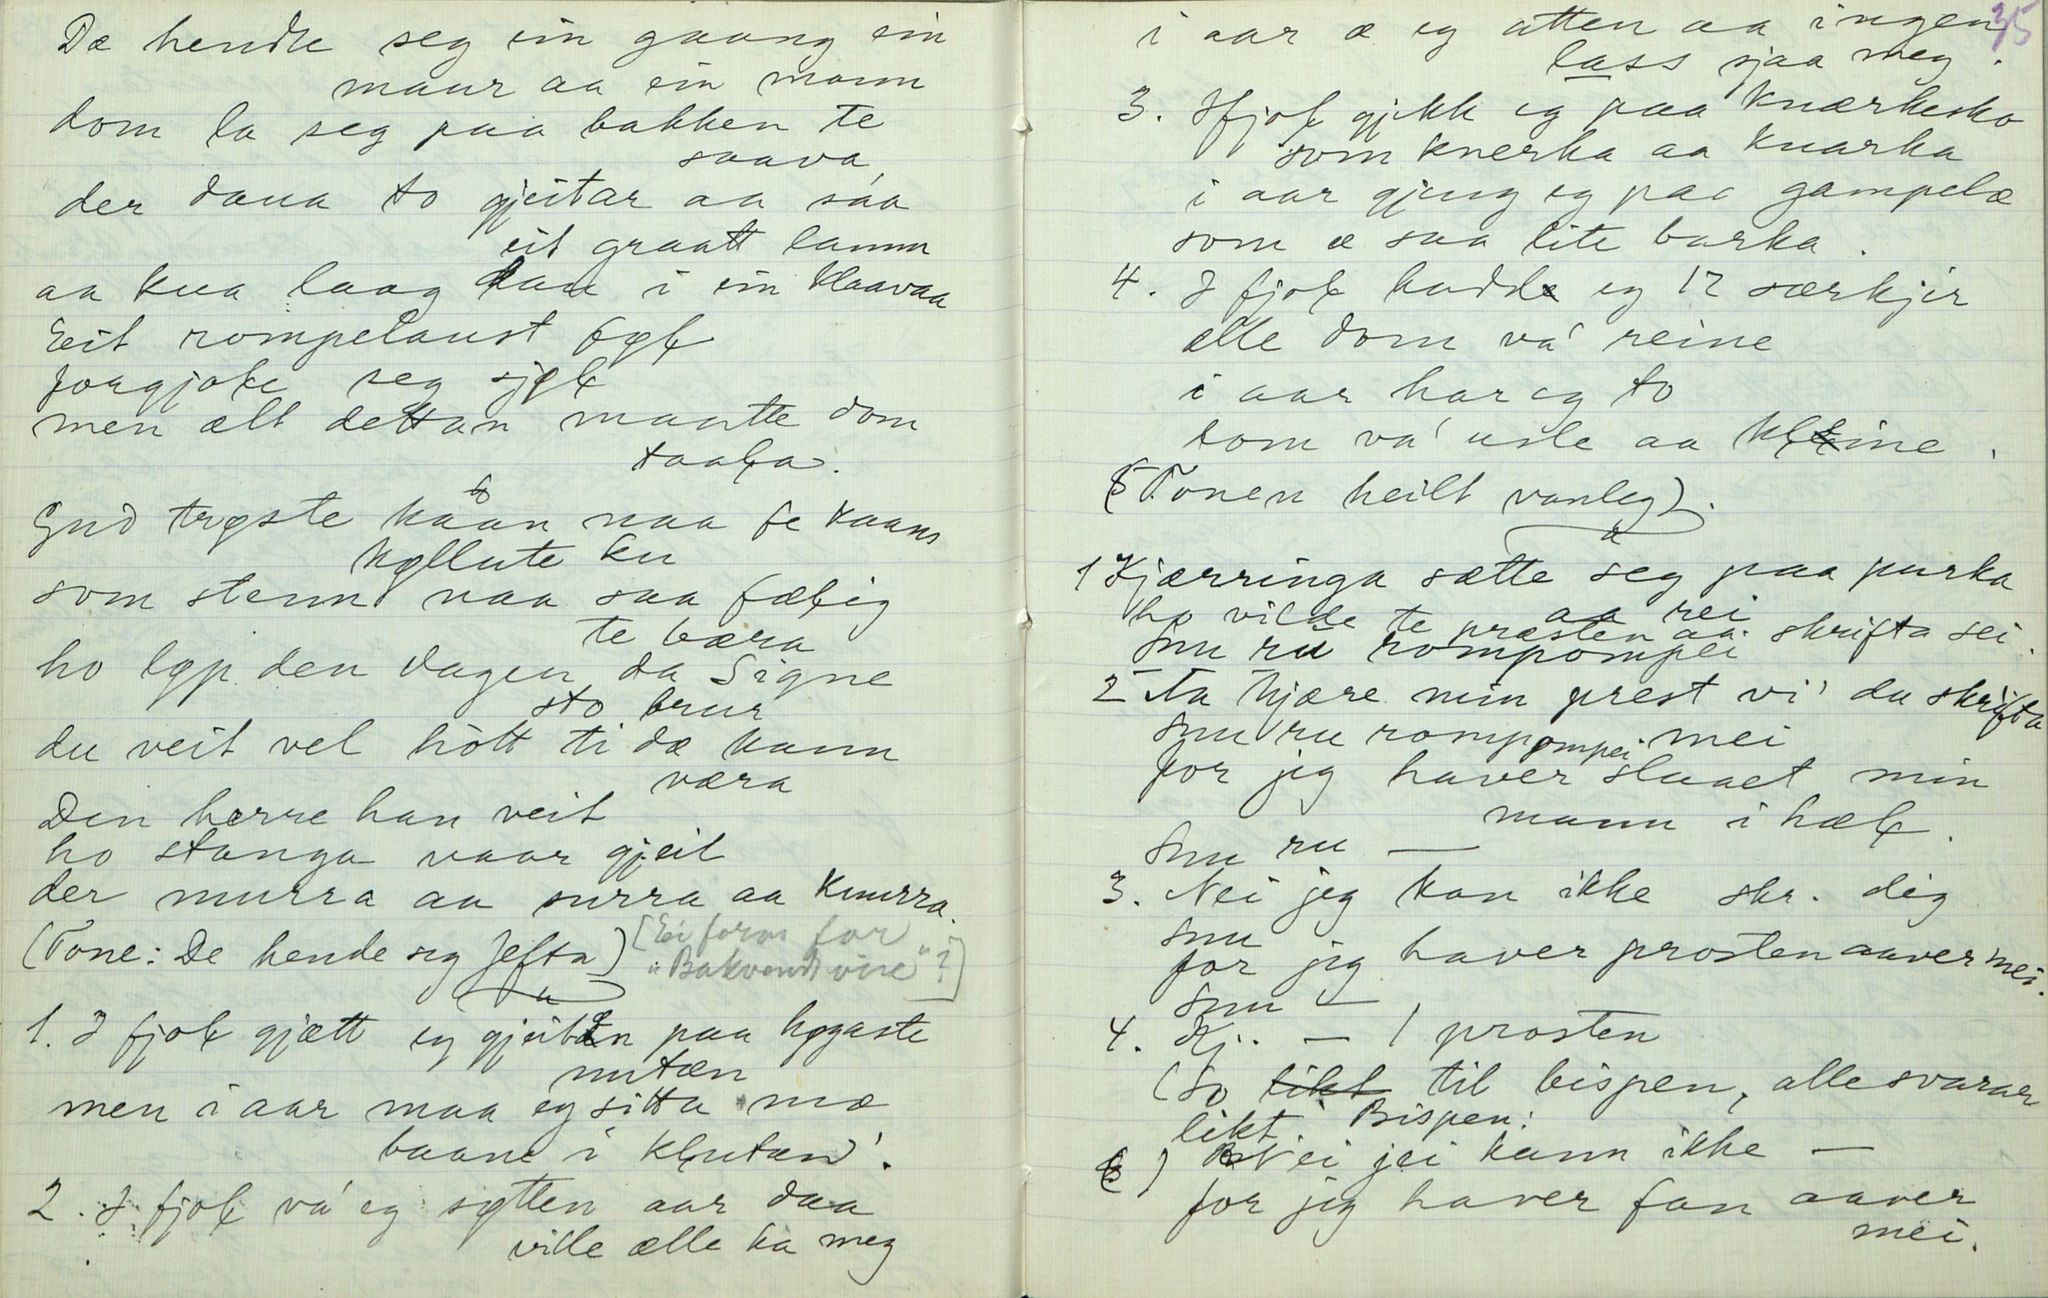 Dæ hendte seg ein gaang ein
maur aa ein mann
dom la seg paa bakken te
saava
der daua to gjeitar aa saa
eit graatt lamm
aa kua laag dau i ein klaavaa
Eit rompelaust øgł
forgjole seg sjøł
men alt dettan maatte dom
taała.
Gud trøste kåån naa fe kaans
køllute ku
som stenn naa saa fæłig
te bæra
ho løp den dagen da Signe
sto brur
du veit vel hòtt ti dæ kann
væra
Den herre han veit
ho stanga vaar gjeit
der murra aa surra aa knurra.
(Tone: De hende seg Jefta) [Ei form for
"Bakvendtvise"?]
1. I fjoł gjætt eg gjeitan paa høgaste
nutæn
men i aar maa eg sitta mæ
baane i kłutan'.
2. I fjoł vá eg søtten aar daa
ville ælle ha meg
35
i aar æ eg atten aa ingen
lass sjaa meg.
3. Ifjoł gjikk eg paa knærkesko
som knerka aa knarka
i aar gjeng eg paa gampelæ
som æ saa lite barka.
4. I fjoł hadde eg 12 særkjer
ælle dom vá reine
i aar har eg to
dom vá usle aa kłeine.
(Tonen heilt vanleg).
1 Kjærringa sætte seg paa purka
aa rei
ho vilde te præsten aa skrifta sei.
Snu ru rompompei
2 Aa kjære min prest vi' du skrifta
mei
snu ru rompompei
for jeg haver slaaet min
mann i hæł.
Snu ru —
3. Nei jeg kan ikke skr. dig
snu
for jeg haver prosten aaver mei.
Snu —
4. Kj. — / prosten
(So likt til bispen, alle svarar
likt. Bispen:
) Nei jei kann ikke —
for jeg haver fan aaver
mei.